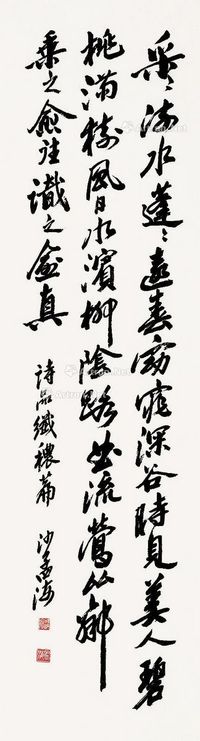 采〻流水蓬〻遠春窈窕深谷時見美人碧
桃滿樹風日水濱柳陰路曲流鶯比鄰
乘之愈往識之愈真
詩品纖穠篇 沙孟海